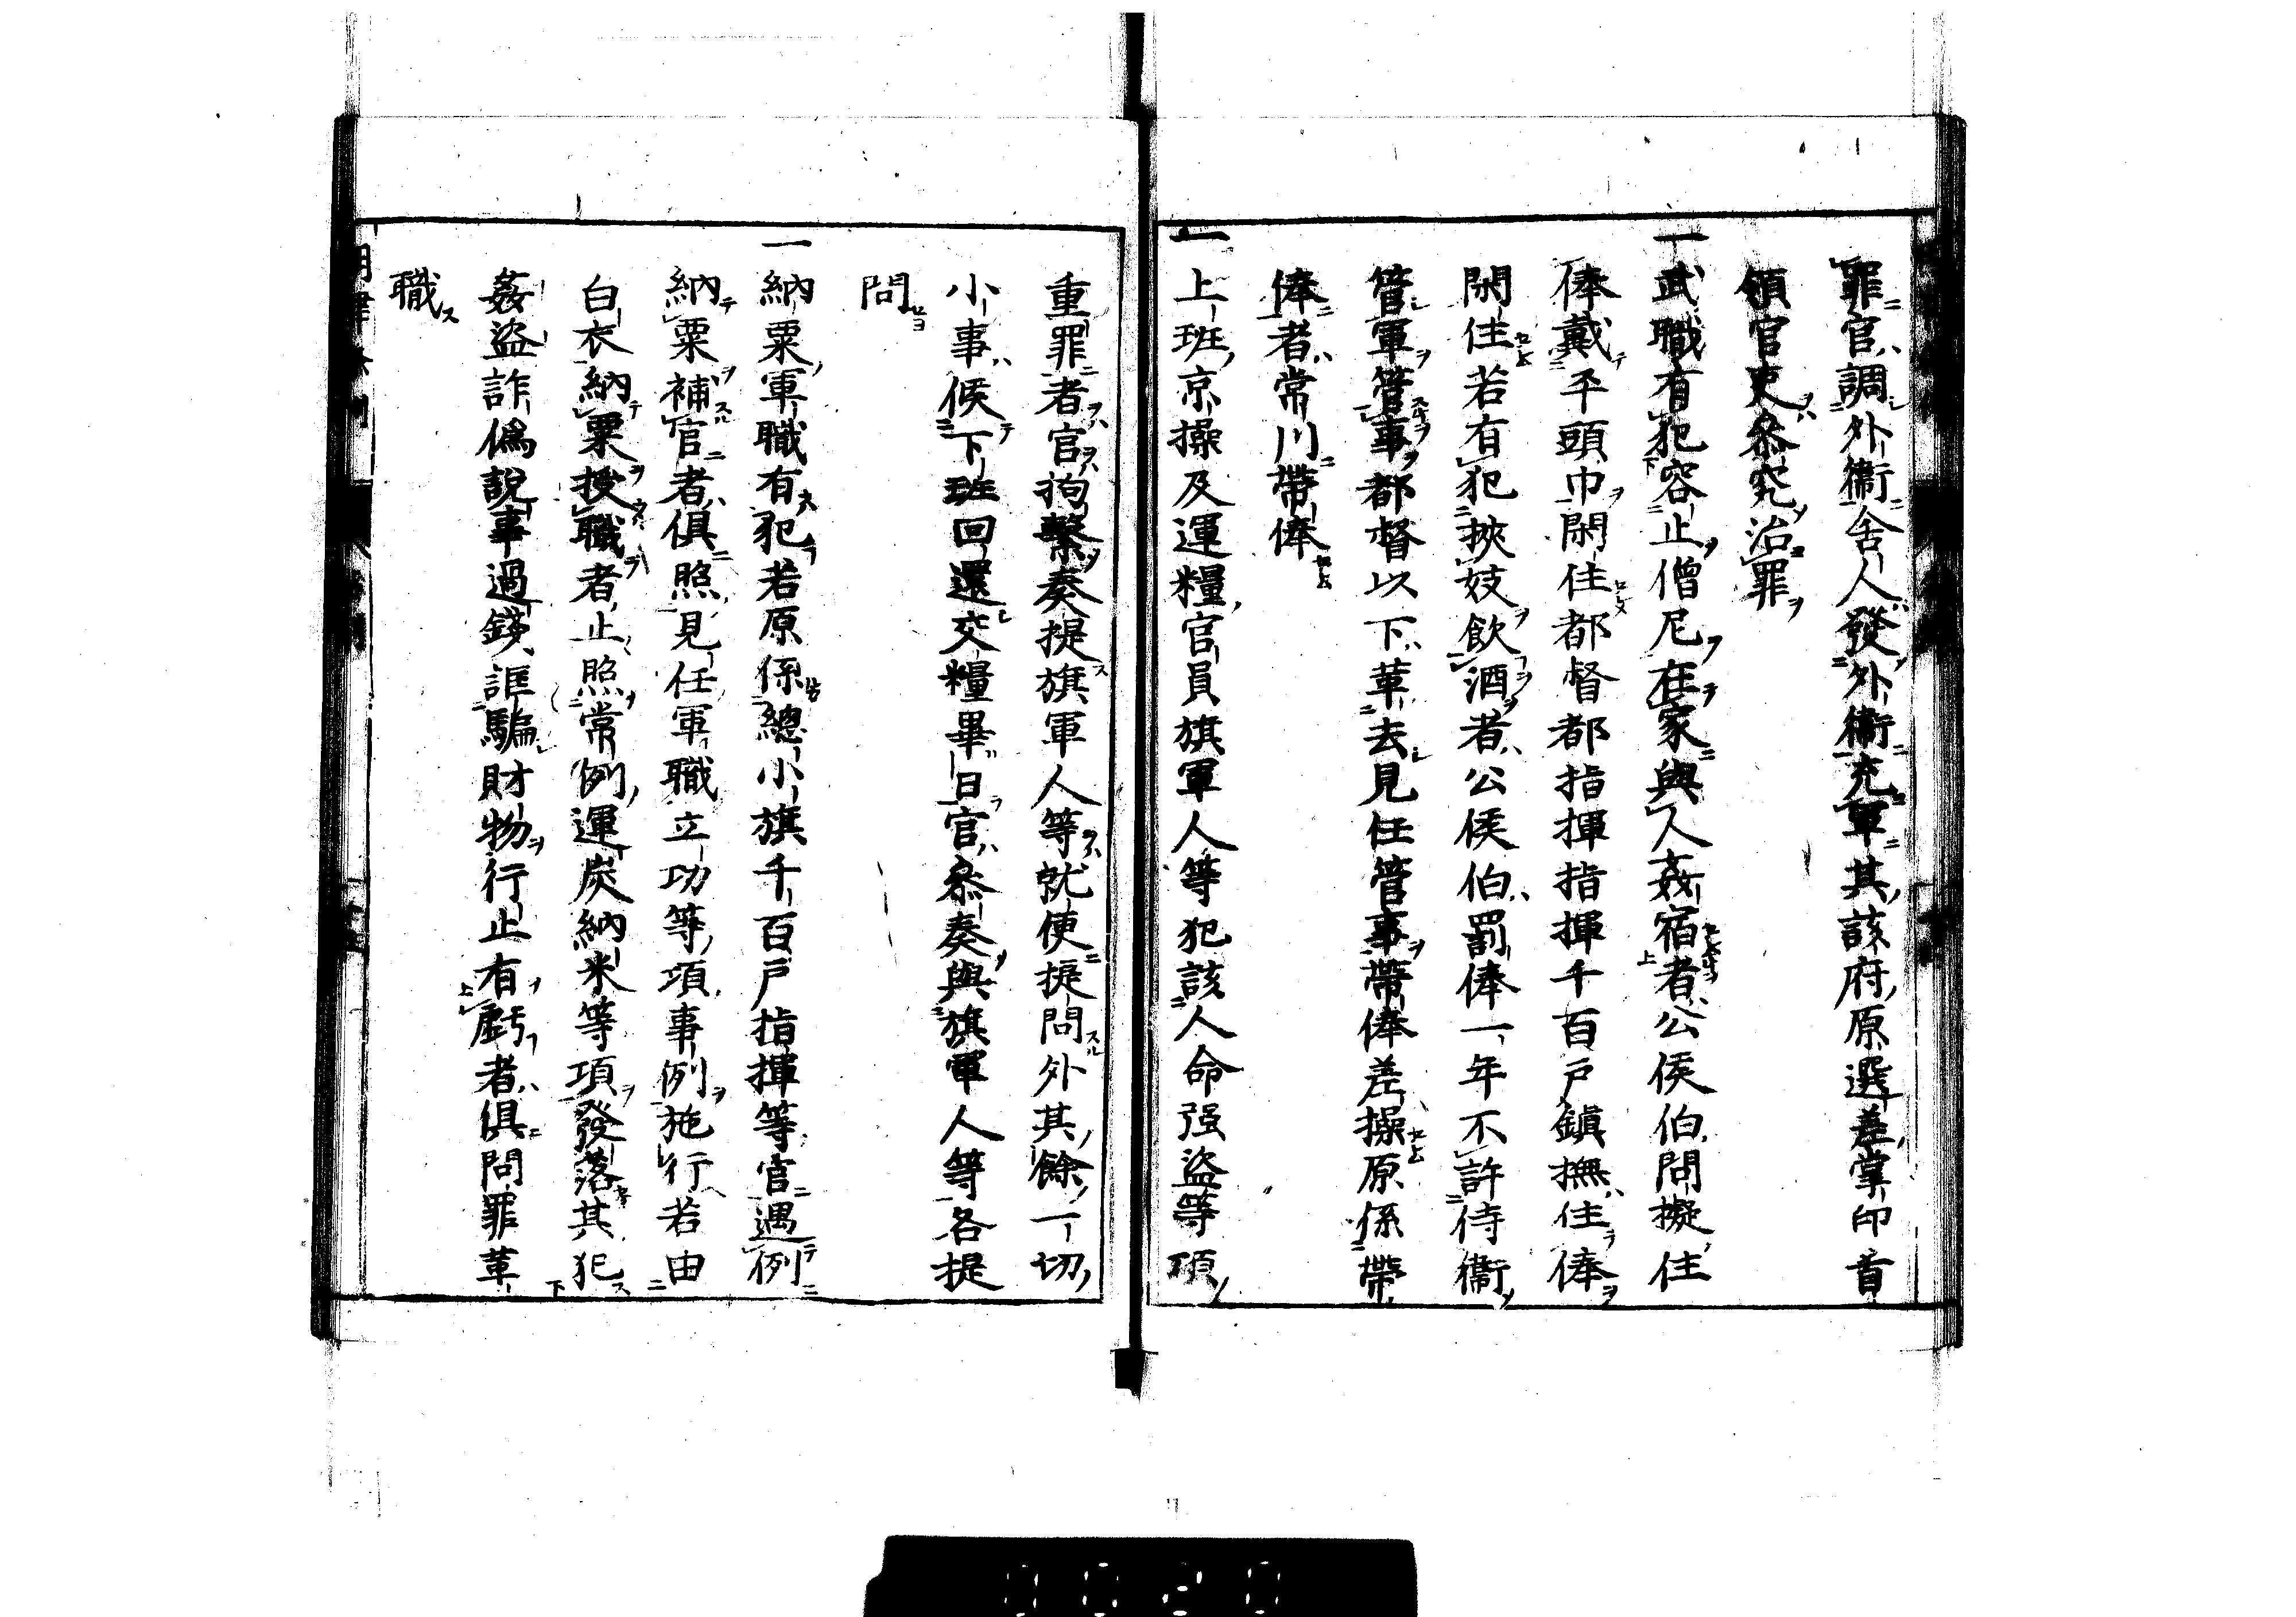 罪官調外衞舍人發外衞充軍其該府原選差掌印首
領官吏叅究治罪
一武職有犯容止僧尼在家與人姦宿者公侯伯問擬住
俸戴平頭巾閑住都督都指揮指揮千百戶鎮撫住俸
閑住若有犯挾妓飲酒者公侯伯罰俸一年不許侍衞
管軍管事都督以下革去見任管事帶俸差操原係帶
俸者常川帶俸
一上班京操及運糧官員旗軍人等犯該人命强盜等項
重罪者官拘繫奏提旗軍人等就便提問外其餘一切
小事候下班回還交糧畢日官叅奏與旗軍人等各提
問
一納粟軍職有犯若原係總小旗千百戶指揮等官遇例
納粟補官者俱照見任軍職立功等項事例施行若由
白衣納粟授職者止照常例運炭納米等項發落其犯
姦盜詐僞說事過錢誆騙財物行止有虧者俱問罪革
職